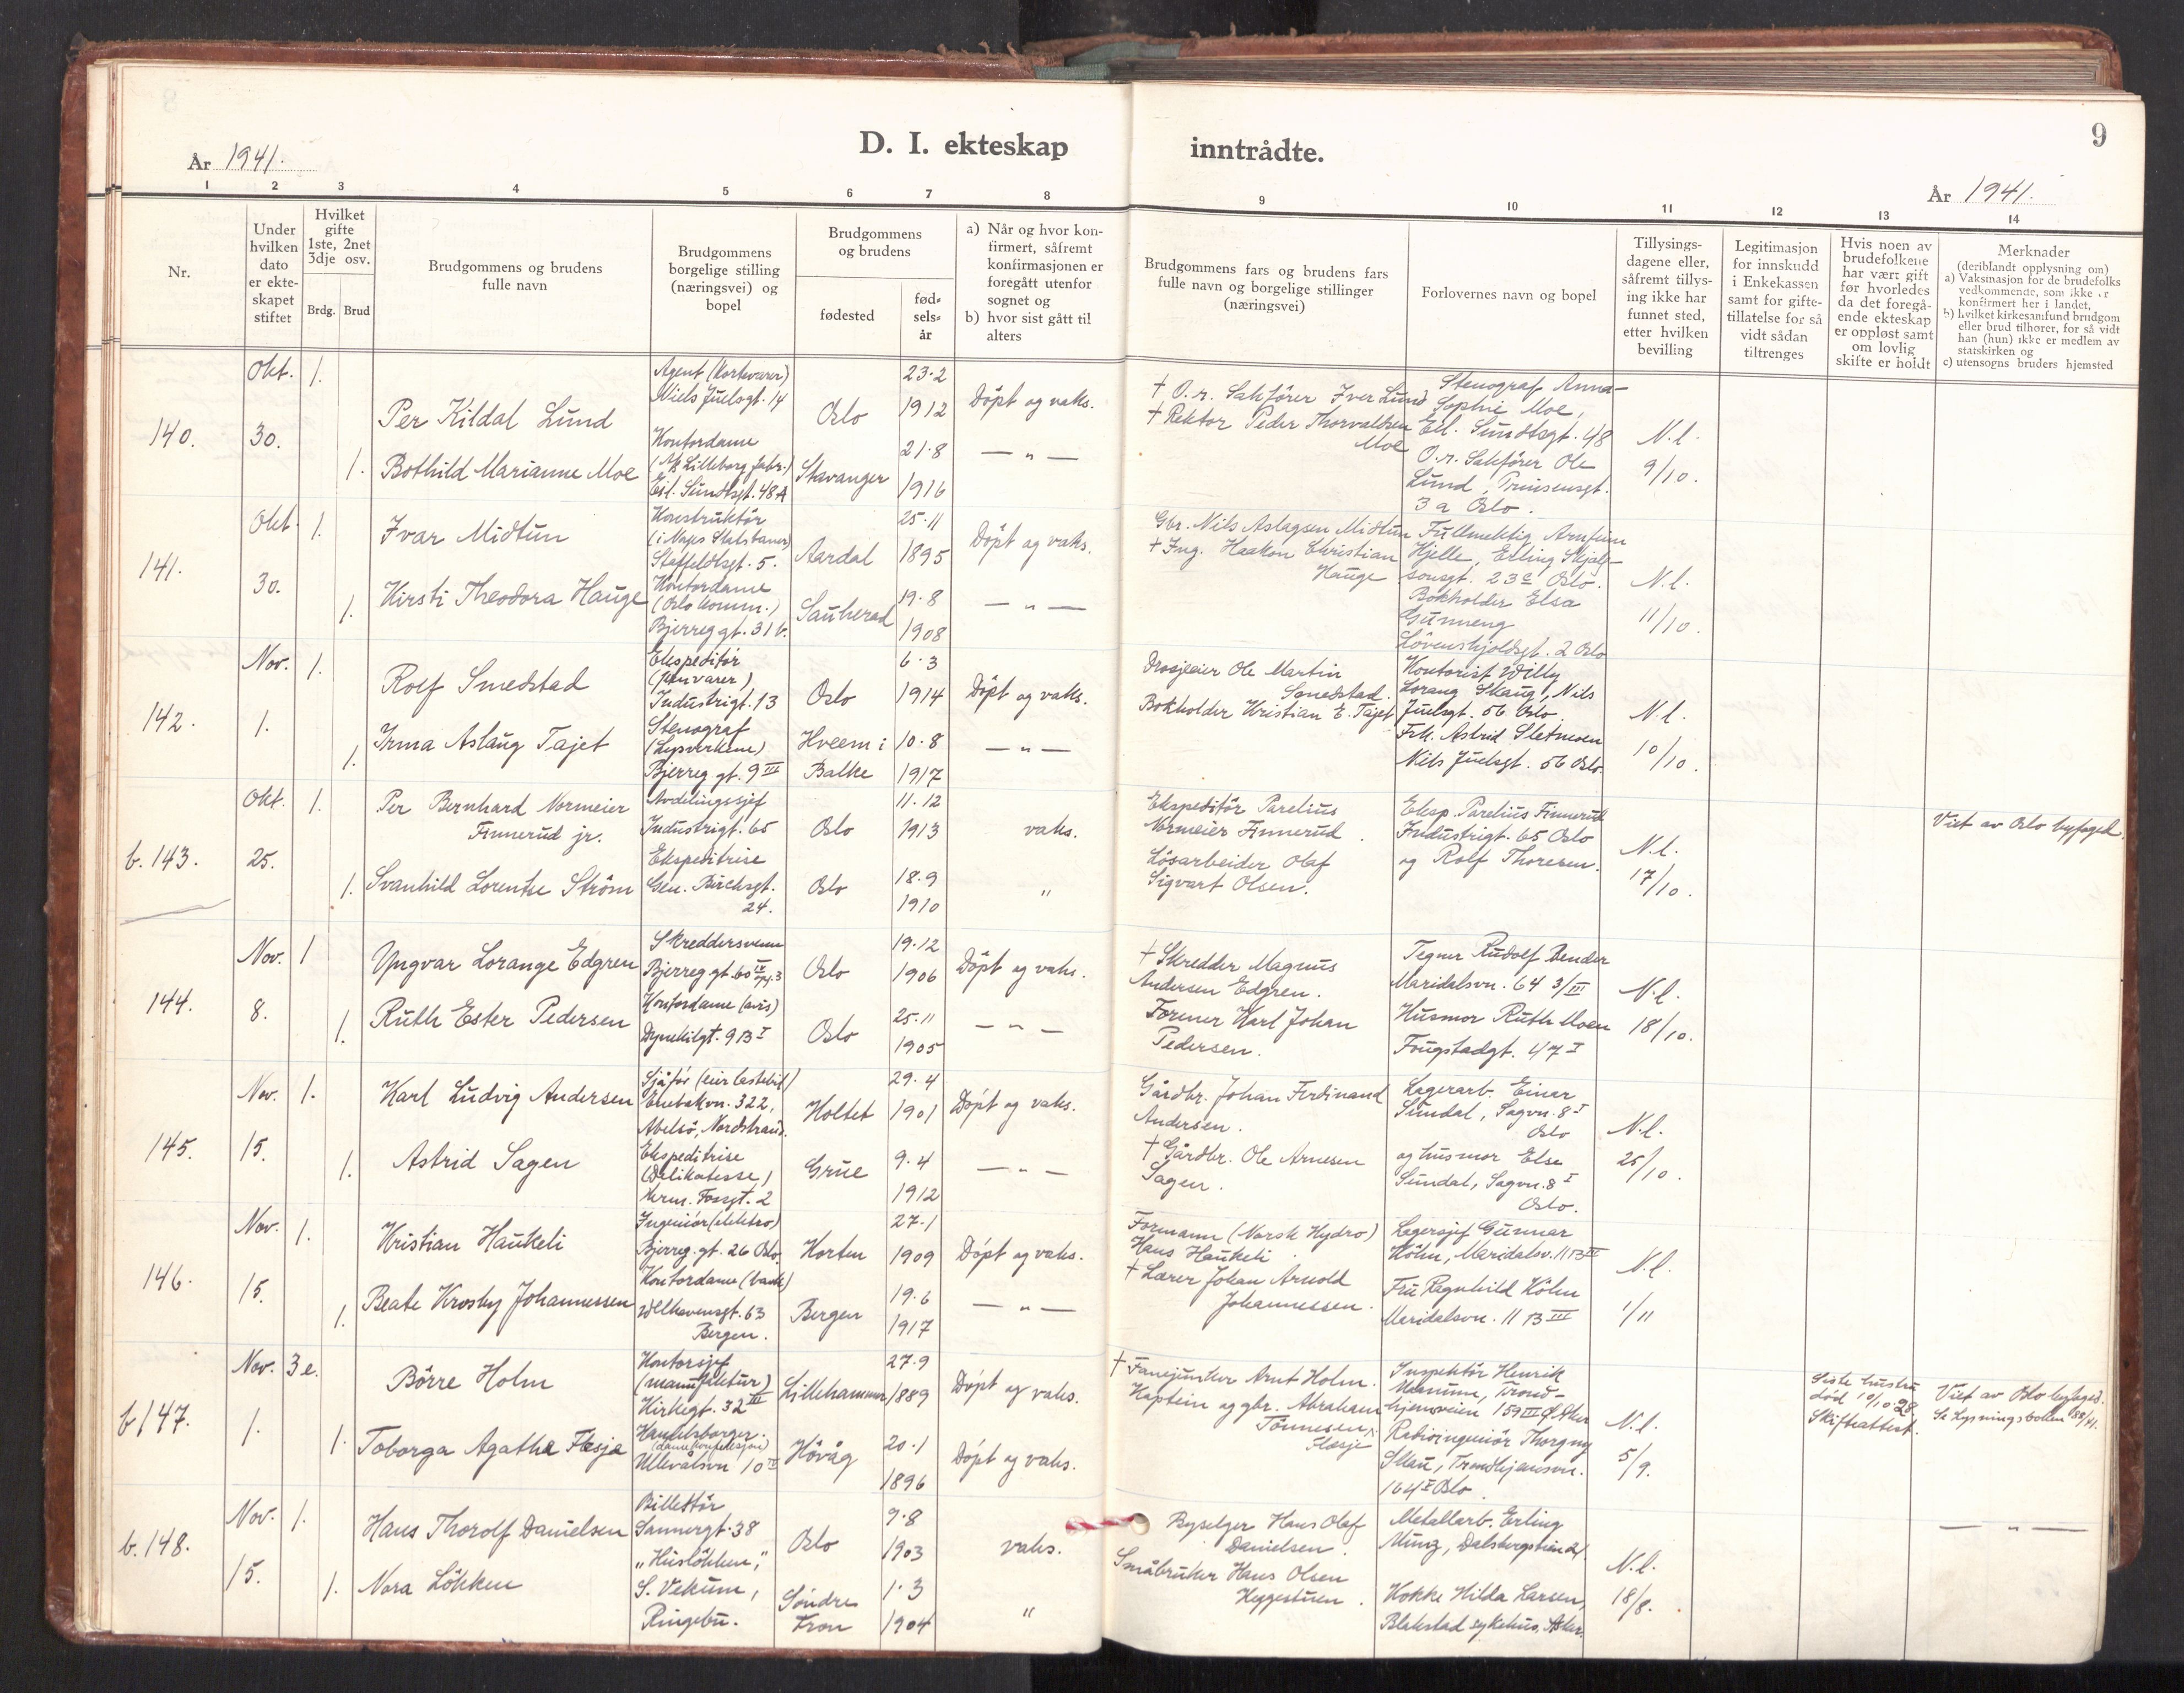 D. I. ekteskap inntrådte.
9
År 1941.
År 1941.
1 2 3 4 5 6 7 8 9 10 11 12 13 14
Nr.
Under hvilken dato er ekte-skapet stiftet
Hvilket gifte 1ste, 2net 3dje osv.
Brdg. Brud
Brudgommens og brudens fulle navn
Brudgommens borgelige stilling (næringsvei) og bopel
Brudgommens og brudens
fødested
fød-sels-år
a) Når og hvor kon-firmert, såfremt konfirmasjonen er foregått utenfor sognet og
b) hvor sist gått til alters
Brudgommens fars og brudens fars fulle navn og borgelige stillinger (næringsvei)
Forlovernes navn og bopel
Tillysings-dagene eller, såfremt tillys-ing ikke har funnet sted, etter hvilken bevilling
Legitimasjon for innskudd i Enkekassen samt for gifte-tillatelse for så vidt sådan tiltrenges
Hvis noen av brudefolkene har vært gift før hvorledes da det foregå-ende ekteskap er oppløst samt om lovlig skifte er holdt
Merknader
(deriblandt opplysning om)
a) Vaksinasjon for de brudefolks vedkommende, som ikke er konfirmert her i landet,
b) hvilket kirkesamfund brudgom eller brud tilhører, for så vidt han (hun) ikke er medlem av statskirken og
c) utensogns bruders hjemsted
140.
Okt. 30.
1.
Per Kildal Lund
Agent (kortevarer)
Niels Juelsgt. 14
Oslo
23.2
1912
Døpt og vaks.
† O.r. Sakfører Iver Lund
1.
Bothild Marianne Moe
Kontordame
(A/S Lilleborg fabr.)
Eil. Sundtsgt. 48A
Stavanger
21.8
1916
— " —
† Rektor Peder Thorvaldsen Moe
Stenograf Anna-
Sophie Moe,
Eil. Sundtsgt. 48
O.r. Sakfører Ole
Lund, Bruunsgt.
3 a Oslo.
N.l.
9/10.
141.
Okt. 30.
1.
Ivar Midtun
Konstruktør
(i Norges Statsbaner)
Staffeldtsgt. 5.
Aardal
25.11
1895
Døpt og vaks.
Gbr. Nils Aslagsen Midtun
1.
Kirsti Theodora Hauge
Kontordame
(Oslo komm.)
Bjerreg gt. 31 b.
Sauherad
19.8
1908
— " —
† Ing. Haakon Christian
Hauge
Fullmektig Arnfinn
Hjelle, Erling Skjalg-
sonsgt. 23 c Oslo.
Bokholder Elsa
Gunneng
Løvenskjoldsgt. 2 Oslo
N.l.
11/10.
142.
Nov. 1.
1.
Rolf Smedstad
Ekspeditør
(jernvarer)
Industrigt. 13
Oslo
6.3
1914
Døpt og vaks.
Drosjeeier Ole Martin
Smedstad.
1.
Irma Aslaug Tajet
Stenograf
(Lysverkene)
Bjerreg gt. 9 III
Hveem i
Balke
10.8
1917
— " —
Bokholder Kristian E. Tajet
Kontorist Willy
Lorang Skaug, Nils
Juelsgt. 56 Oslo
Frk. Astrid Sletmoen
Niels Juelsgt. 56 Oslo.
N.l.
10/10.
b. 143.
Okt. 25.
1.
Per Bernhard Normeier
Finnerud jr.
Avdelingssjef
Industrigt. 65
Oslo
11.12
1913
vaks.
Ekspeditør Parelius
Normeier Finnerud.
1.
Svanhild Lorentse Strøm
Ekspeditrise
Gen. Birchsgt.
24.
Oslo
18.9
1910
"
Løsarbeider Olaf
Sigvart Olsen.
Eksp. Parelius Finnerud
Industrigt. 65 Oslo
og Rolf Thoresen.
N.l.
17/10.
Viet av Oslo byfoged.
144.
Nov. 8.
1
Yngvar Lorange Edgren
Skreddersvenn
Bjerreg gt. 60 IV opg. 3
Oslo
19.12
1906
Døpt og vaks.
† Skredder Magnus
Andersen Edgren.
1.
Ruth Ester Pedersen
Kontordame (avis)
Dynekilgt. 9 B I
Oslo
25.11
1905
— " —
Former Karl Johan
Pedersen.
Tegner Rudolf Bender
Maridalsvn. 64 3/III
Husmor Ruth Moen
Fougstadgt. 47 I
N.l.
18/10.
145.
Nov. 15.
1.
Karl Ludvig Andersen
Sjåfør (eier lastebil)
Enebakvn. 322,
Abelsø, Nordstrand.
Holtet
29.4
1901
Døpt og vaks.
Gårdbr. Johan Ferdinand
Andersen.
1.
Astrid Sagen
Ekspeditrise
(Delikatesse)
Herm. Fossgt. 2
Grue
9.4
1912
— " —
† Gårdbr. Ole Arnesen
Sagen.
Lagerarb. Einar
Sundal, Sagvn. 8 I
Oslo
og husmor Else
Sundal, Sagvn. 8 I
Oslo.
N.l.
25/10.
146.
Nov. 15.
1.
Kristian Haukeli
Ingeniør (elektro)
Bjerreg. gt. 26 Oslo
Horten
27.1
1909
Døpt og vaks.
Formann (Norsk Hydro)
Hans Haukeli.
1.
Beate Krosby Johannessen
Kontordame (bank)
Welhavensgt. 63
Bergen.
Bergen
19.6
1917
— " —
† Lærer Johan Arnold
Johannessen.
Lagersjef Gunnar
Köhn, Maridalsv. 11 B III
Fru Ragnhild Köhn
Maridalsvn. 11 B III
N.l.
1/11
b 147.
Nov. 1.
3 e.
Börre Holm
Kontorsjef
(manufaktur)
Kirkegt. 32 III
Lillehammer
27.9
1889
Døpt og vaks.
† Fanejunker Arnt Holm.
1.
Toborga Agathe Flesja
Handelsborger.
(damekonfeksjon)
Ullevålsvn 10 IV
Høvåg
20.1
1896
Døpt og vaks.
Kaptein og gbr. Abraham
Tönnesen
Flesje
Inspektør Henrik
Monume, Trond-
hjemsveien 159 III Ø. Aker
Radioingeniør Thorgny
Slau, Trondhjemsvn.
164 I Oslo.
N.l.
5/9.
Siste hustru
død 10/10-28
Skifteattest.
Viet av Oslo byfoged.
Se Lysningsboken 88/41.
b. 148.
Nov. 15.
1.
Hans Thorolf Danielsen
Billettør
Sannergt. 38
Oslo
9.8
1903
vaks.
Byselger Hans Olaf
Danielsen.
1.
Nora Løkken
"Husløkken",
S. Vekum,
Ringebu.
Søndre
Fron
1.3
1904
"
Småbruker Hans Olsen
Heggestuen.
Metallarb. Erling
Münz, Dalsbergstien 21.
Kokke Hilda Larsen,
Blakstad sykehus, Asker.
N.l.
18/8.
— " —